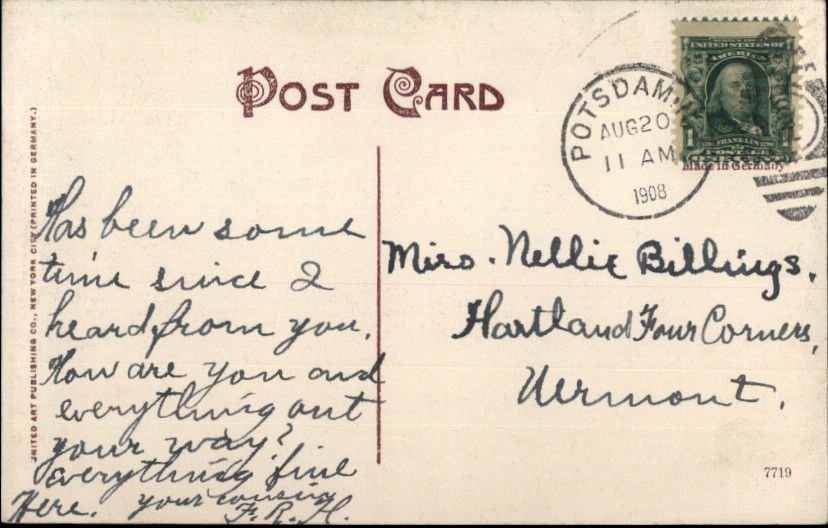 POST CARD
POTSDAM
AUG 20
11 AM
1908
SERIES 1902
UNITED STATES OF
AMERICA
1 FRANKLIN 1
POSTAGE
Made in Germany
UNITED ART PUBLISHING CO., NEW YORK CITY (PRINTED IN GERMANY.)
Has been some
time since I
heard from you.
How are you and
everything out
your way?
everything fine
Here. your cousin
F. R. H.
Miss. Nellie Billings.
Hartland Four Corners,
Vermont.
7719